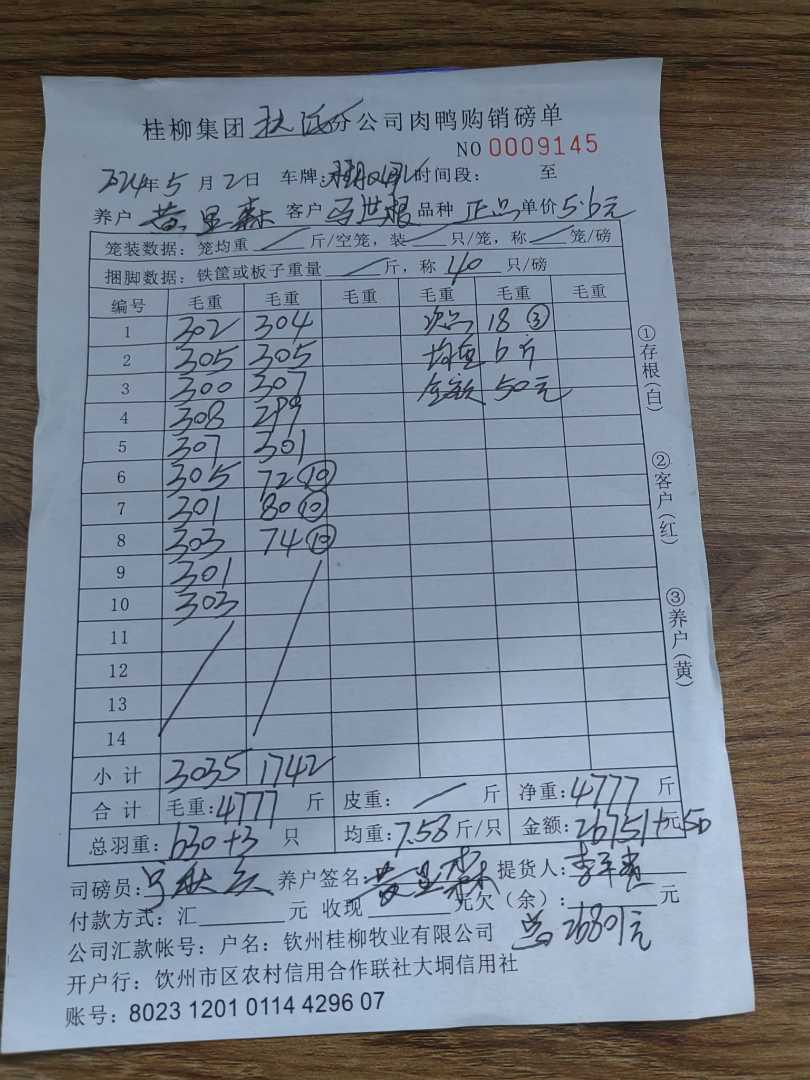 桂柳集团 分公司肉鸭购销磅单
NO 0009145
2024年5月2日 车牌: 时间段: 至
养户 黄显森 客户 马世根 品种 正品 单价 5.6元
笼装数据：笼均重 / 斤/空笼，装 / 只/笼，称 / 笼/磅
捆脚数据：铁筐或板子重量 / 斤，称 40 只/磅
编号 毛重 毛重 毛重 毛重 毛重 毛重
1 302 304 次品 18 ③
2 305 305 均重 6斤
3 300 307 金额 50元
4 308 299
5 307 301
6 305 72 ⑩
7 301 80 ⑩
8 303 74 ⑩
9 301
10 303
11
12
13
14
小计 3035 1742
合计 毛重:4777 斤 皮重: / 斤 净重:4777 斤
总羽重: 630+3 只 均重:7.58 斤/只 金额:26751+元50
司磅员: 养户签名: 黄显森 提货人:
付款方式：汇 元 收现 元欠（余）: 元
公司汇款帐号：户名：钦州桂柳牧业有限公司 总26801元
开户行：钦州市区农村信用合作联社大垌信用社
账号：8023 1201 0114 4296 07
①存根(白)
②客户(红)
③养户(黄)